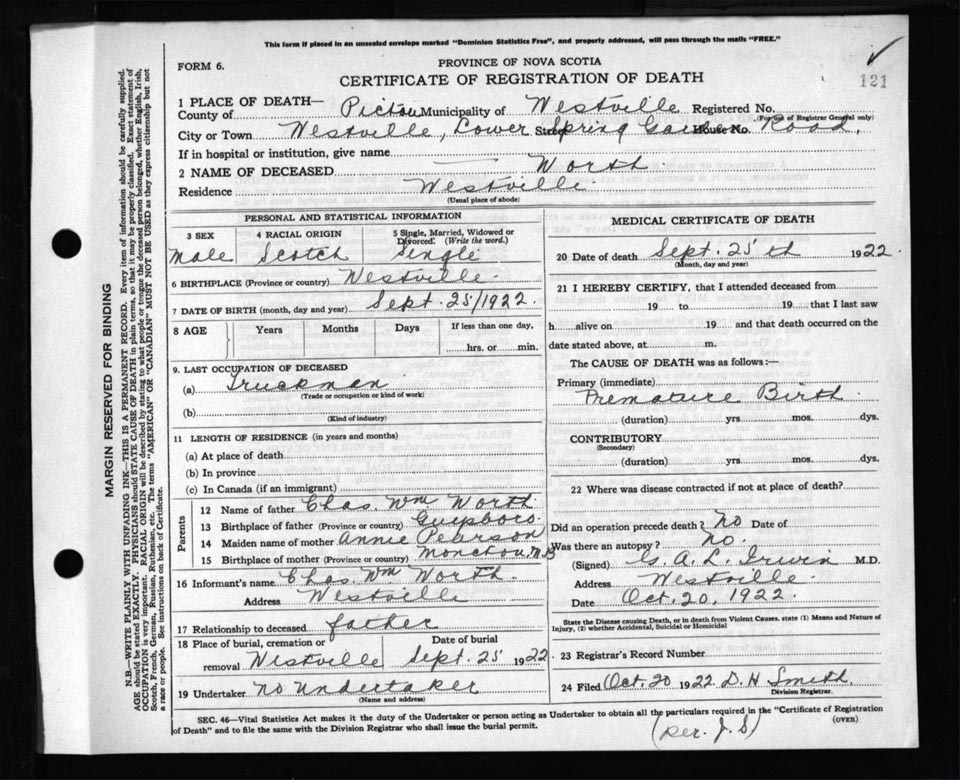 This form if placed in an unsealed envelope marked "Dominion Statistics Free", and properly addressed, will pass through the mails "FREE."
FORM 6.
PROVINCE OF NOVA SCOTIA
CERTIFICATE OF REGISTRATION OF DEATH
121
1 PLACE OF DEATH—
County of Pictou Municipality of Westville Registered No.
(For use of Registrar General only)
City or Town Westville, Lower Street Spring Garden House No. Road,
If in hospital or institution, give name
2 NAME OF DECEASED Worth
Residence Westville
(Usual place of abode)
PERSONAL AND STATISTICAL INFORMATION
3 SEX 4 RACIAL ORIGIN 5 Single, Married, Widowed or Divorced. (Write the word.)
Male Scotch Single
6 BIRTHPLACE (Province or country) Westville
7 DATE OF BIRTH (month, day and year) Sept. 25/1922.
8 AGE Years Months Days If less than one day,
hrs. or min.
9. LAST OCCUPATION OF DECEASED
(a) Truckman
(Trade or occupation or kind of work)
(b)
(Kind of industry)
11 LENGTH OF RESIDENCE (in years and months)
(a) At place of death
(b) In province
(c) In Canada (if an immigrant)
Parents
12 Name of father Chas. Wm Worth
13 Birthplace of father (Province or country) Guysboro.
14 Maiden name of mother Annie Pearson
15 Birthplace of mother (Province or country) Moncton, N.B
16 Informant's name Chas. Wm Worth.
Address Westville
17 Relationship to deceased father
18 Place of burial, cremation or removal Westville
Date of burial Sept. 25 1922
19 Undertaker No Undertaker
(Name and address)
MEDICAL CERTIFICATE OF DEATH
20 Date of death Sept. 25th 1922.
(Month, day and year)
21 I HEREBY CERTIFY, that I attended deceased from
19 to 19 that I last saw
h alive on 19 and that death occurred on the
date stated above, at m.
The CAUSE OF DEATH was as follows:—
Primary (immediate)
Premature Birth
(duration) yrs. mos. dys.
CONTRIBUTORY
(Secondary)
(duration) yrs. mos. dys.
22 Where was disease contracted if not at place of death?
Did an operation precede death? No Date of
Was there an autopsy? No.
(Signed) G. A. L. Irwin M.D.
Address Westville.
Date Oct. 20, 1922.
State the Disease causing Death, or in death from Violent Causes, state (1) Means and Nature of
Injury, (2) whether Accidental, Suicidal or Homicidal
23 Registrar's Record Number
24 Filed Oct 20 1922 D. H Smith.
Division Registrar.
SEC. 46—Vital Statistics Act makes it the duty of the Undertaker or person acting as Undertaker to obtain all the particulars required in the "Certificate of Registration
of Death" and to file the same with the Division Registrar who shall issue the burial permit.
(OVER)
(per. J. S)
MARGIN RESERVED FOR BINDING
N.B.—WRITE PLAINLY WITH UNFADING INK—THIS IS A PERMANENT RECORD. Every item of information should be carefully supplied.
AGE should be stated EXACTLY. PHYSICIANS should STATE CAUSE OF DEATH in plain terms, so that it may be properly classified. Exact statement of
OCCUPATION is very important. RACIAL ORIGIN will be described by stating to what people or tongue the deceased person belonged, whether English, Irish,
Scotch, French, German, Russian, Ruthenian, etc. The terms "AMERICAN" OR "CANADIAN" MUST NOT BE USED as they express citizenship but not
a race or people. See instructions on back of Certificate.